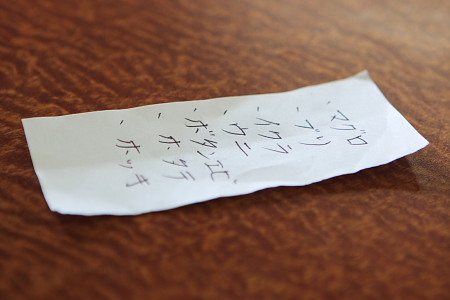 、マグロ
、ブリ
、イクラ
、ウニ
、ボタンエビ
、ホタテ
、ホッキ